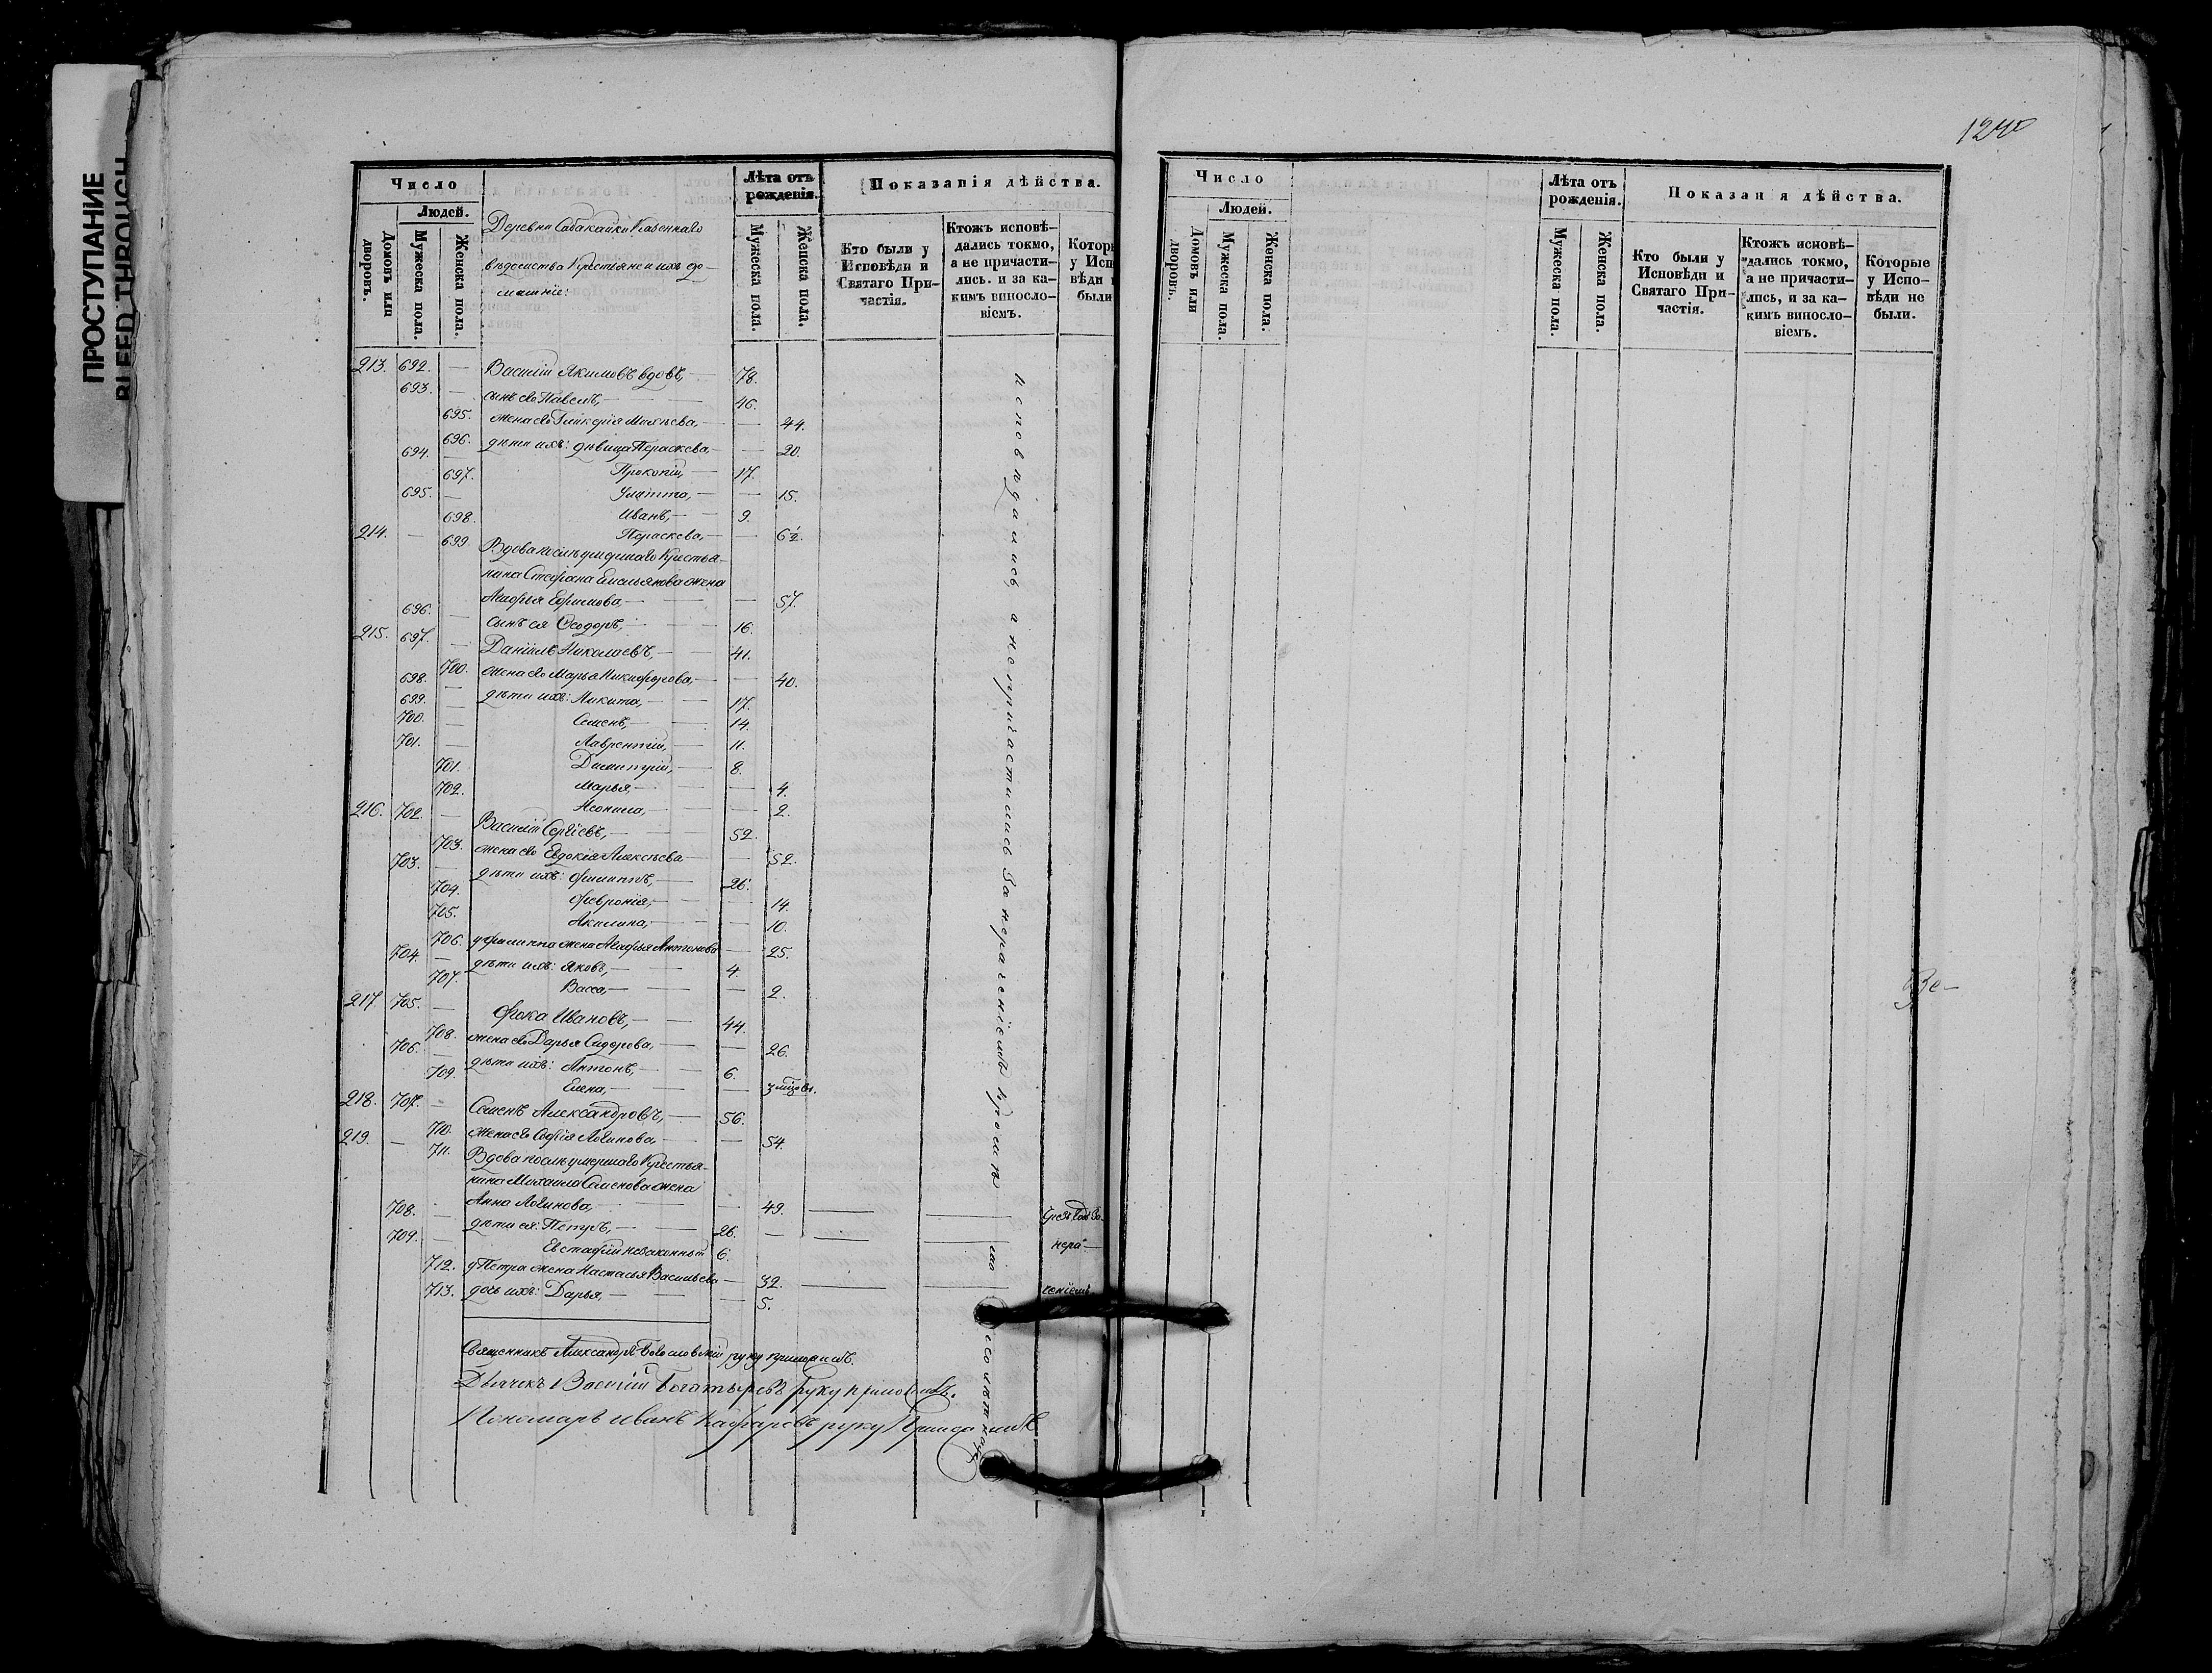 ПРОСТУПАНИЕ
BLEED THROUGH
1240
Число
Людей.
Домовъ или дворовъ.
Мужеска пола.
Женска пола.
Лѣта отъ рожденія.
Мужеска пола.
Женска пола.
Показанія дѣйства.
Кто были у Исповѣди и Святаго Причастія.
Ктожъ исповѣдались токмо, а не причастились. и за какимъ винословіемъ.
Деревни Собакайки Казеннаго
вѣдомства Крестьяне и ихъ до-
машніе:
213. 692. — Василій Якимовъ вдовъ, — 78.
693. — сынъ его Павелъ, — 46.
695. жена его Гликерія — 44.
696. дѣти ихъ: дѣвица Параскева, — 20.
694. — Прокопій, — 17.
697. Улитта, — 15.
695. — Иванъ, — 9.
698. Параскева, — 6½.
214. — 699. Вдова послѣ умершаго Крестья-
нина Стефана Емельянова жена
Марья Ефимова — 57.
696. — сынъ ея Ѳеодоръ, — 16.
215. 697. — Даніилъ Николаевъ, — 41.
700. жена его Марья Никифорова, — 40.
698. — дѣти ихъ: Никита, — 17.
699. — Семенъ, — 14.
700. — Лаврентій, — 11.
701. — Димитрій, — 8.
701. Марья, — 4.
702. Неонила, — 2.
216. 702. — Василій Сергѣевъ, — 52.
703. жена его Евдокія Алексѣева — 52.
703. — дѣти ихъ: Филиппъ, — 26.
704. Февронія, — 14.
705. Акилина, — 10.
706. у Филиппа жена Агафья Антонова — 25.
704. — дѣти ихъ: Яковъ, — 4.
707. Васса, — 2.
217. 705. — Фока Ивановъ, — 44.
708. жена его Дарья Сидорова, — 26.
706. — дѣти ихъ: Антонъ, — 6.
709. Елена, — 3 мѣсяц.
218. 707. — Семенъ Александровъ, — 56.
710. жена его Софія Логинова, — 54.
219. — 711. Вдова послѣ умершаго Крестья-
нина Михаила Семенова жена
Анна Логинова, — 49.
708. — дѣти ея: Петръ, — 26. —
709. — Евстафій незаконный 6.
712. у Петра жена Настасья Васильева — 32.
713. дочь ихъ: Дарья, — 5.
исповѣдались, а не причастились за нераченіемъ кромѣ
нера-
ченіемъ
Священникъ Александръ Богословскій руку приложилъ.
Дьячекъ Василій Богатыревъ руку приложилъ.
Пономарь Иванъ руку приложилъ
Число
Людей.
Домовъ или дворовъ.
Мужеска пола.
Женска пола.
Лѣта отъ рожденія.
Мужеска пола.
Женска пола.
Показания дѣйства.
Кто были у Исповѣди и Святаго Причастія.
Ктожъ исповѣдались токмо, а не причастились, и за какимъ винословіемъ.
Которые у Исповѣди не были.